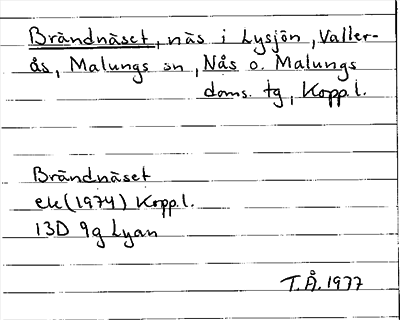 Brändnäset, näs i Lysjön, Valler-
ås, Malungs sn, Nås o. Malungs
doms. tg, Kopp.l.
Brändnäset
ek (1974) Kopp.l.
13D 9g Lyan
T.Å. 1977